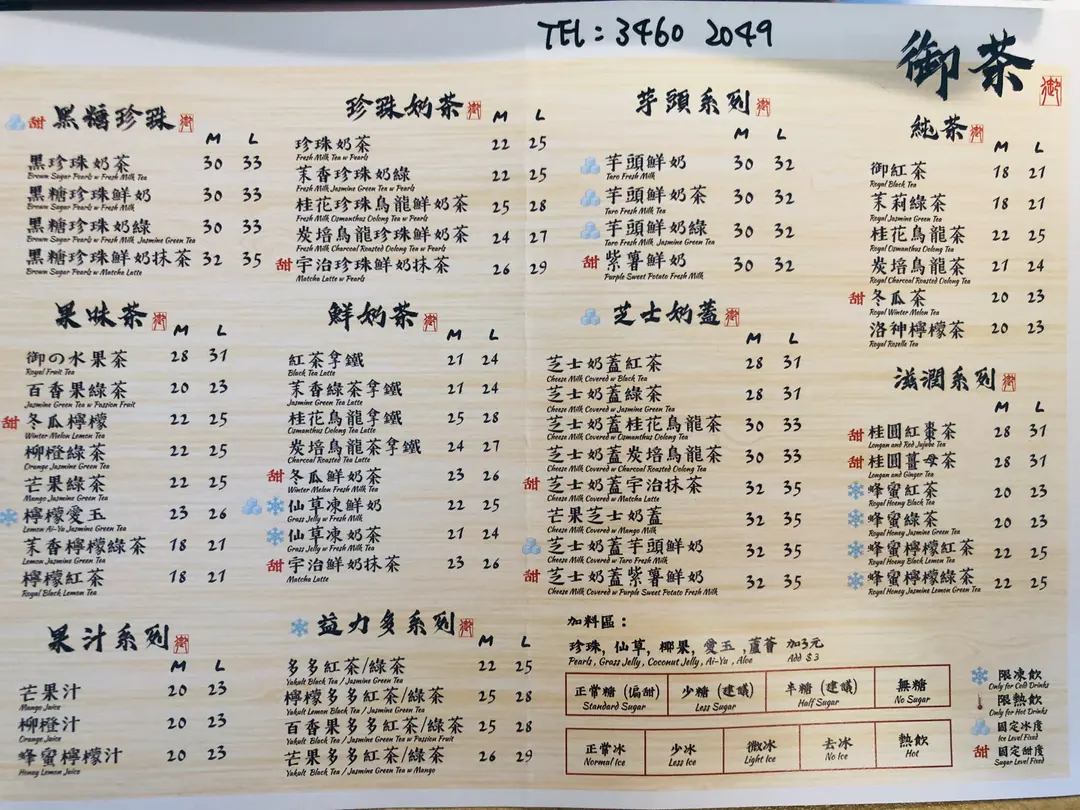 TEL: 3460 2049
御茶
甜 黑糖珍珠
M L
黑珍珠奶茶 30 33
Brown Sugar Pearls w Fresh Milk Tea
黑糖珍珠鮮奶 30 33
Brown Sugar Pearls w Fresh Milk
黑糖珍珠奶綠 30 33
Brown Sugar Pearls w Fresh Milk Jasmine Green Tea
黑糖珍珠鮮奶抹茶 32 35
Brown Sugar Pearls w Matcha Latte
珍珠奶茶
M L
珍珠奶茶 22 25
Fresh Milk Tea w Pearls
茉香珍珠奶綠 22 25
Fresh Milk Jasmine Green Tea w Pearls
桂花珍珠烏龍鮮奶茶 25 28
Fresh Milk Osmanthus Oolong Tea w Pearls
炭培烏龍珍珠鮮奶茶 24 27
Fresh Milk Charcoal Roasted Oolong Tea w Pearls
甜 宇治珍珠鮮奶抹茶 26 29
Matcha Latte w Pearls
芋頭系列
M L
芋頭鮮奶 30 32
Taro Fresh Milk
芋頭鮮奶茶 30 32
Taro Fresh Milk Tea
芋頭鮮奶綠 30 32
Taro Fresh Milk Jasmine Green Tea
甜 紫薯鮮奶 30 32
Purple Sweet Potato Fresh Milk
純茶
M L
御紅茶 18 21
Royal Black Tea
茉莉綠茶 18 21
Royal Jasmine Green Tea
桂花烏龍茶 22 25
Royal Osmanthus Oolong Tea
炭培烏龍茶 21 24
Royal Charcoal Roasted Oolong Tea
甜 冬瓜茶 20 23
Royal Winter Melon Tea
洛神檸檬茶 20 23
Royal Roselle Tea
果味茶
M L
御の水果茶 28 31
Royal Fruit Tea
百香果綠茶 20 23
Jasmine Green Tea w Passion Fruit
甜 冬瓜檸檬 22 25
Winter Melon Lemon Tea
柳橙綠茶 22 25
Orange Jasmine Green Tea
芒果綠茶 22 25
Mango Jasmine Green Tea
檸檬愛玉 23 26
Lemon Ai-Yu Jasmine Green Tea
茉香檸檬綠茶 18 21
Lemon Jasmine Green Tea
檸檬紅茶 18 21
Royal Black Lemon Tea
鮮奶茶
M L
紅茶拿鐵 21 24
Black Tea Latte
茉香綠茶拿鐵 21 24
Jasmine Green Tea Latte
桂花烏龍拿鐵 25 28
Osmanthus Oolong Tea Latte
炭培烏龍茶拿鐵 24 27
Charcoal Roasted Tea Latte
甜 冬瓜鮮奶茶 23 26
Winter Melon Fresh Milk Tea
仙草凍鮮奶 22 25
Grass Jelly w Fresh Milk
仙草凍奶茶 21 24
Grass Jelly w Fresh Milk Tea
甜 宇治鮮奶抹茶 23 26
Matcha Latte
芝士奶蓋
M L
芝士奶蓋紅茶 28 31
Cheese Milk Covered w Black Tea
芝士奶蓋綠茶 28 31
Cheese Milk Covered w Jasmine Green Tea
芝士奶蓋桂花烏龍茶 30 33
Cheese Milk Covered w Osmanthus Oolong Tea
芝士奶蓋炭培烏龍茶 30 33
Cheese Milk Covered w Charcoal Roasted Oolong Tea
甜 芝士奶蓋宇治抹茶 32 35
Cheese Milk Covered w Matcha Latte
芒果芝士奶蓋 32 35
Cheese Milk Covered w Mango Milk
芝士奶蓋芋頭鮮奶 32 35
Cheese Milk Covered w Taro Fresh Milk
甜 芝士奶蓋紫薯鮮奶 32 35
Cheese Milk Covered w Purple Sweet Potato Fresh Milk
滋潤系列
M L
甜 桂圓紅棗茶 28 31
Longan and Red Jujube Tea
甜 桂圓薑母茶 28 31
Longan and Ginger Tea
蜂蜜紅茶 20 23
Royal Honey Black Tea
蜂蜜綠茶 20 23
Royal Honey Jasmine Green Tea
蜂蜜檸檬紅茶 22 25
Royal Honey Black Lemon Tea
蜂蜜檸檬綠茶 22 25
Royal Honey Jasmine Lemon Green Tea
果汁系列
M L
芒果汁 20 23
Mango Juice
柳橙汁 20 23
Orange Juice
蜂蜜檸檬汁 20 23
Honey Lemon Juice
益力多系列
M L
多多紅茶/綠茶 22 25
Yakult Black Tea / Jasmine Green Tea
檸檬多多紅茶/綠茶 25 28
Yakult Lemon Black Tea / Jasmine Green Tea
百香果多多紅茶/綠茶 25 28
Yakult Black Tea / Jasmine Green Tea w Passion Fruit
芒果多多紅茶/綠茶 26 29
Yakult Black Tea / Jasmine Green Tea w Mango
加料區：
珍珠, 仙草, 椰果, 愛玉, 蘆薈 加3元
Pearls, Grass Jelly, Coconut Jelly, Ai-Yu, Aloe Add $3
正常糖 (偏甜) 少糖 (建議) 半糖 (建議) 無糖
Standard Sugar Less Sugar Half Sugar No Sugar
正常冰 少冰 微冰 去冰 熱飲
Normal Ice Less Ice Light Ice No Ice Hot
限凍飲
Only for Cold Drinks
限熱飲
Only for Hot Drinks
固定冰度
Ice Level Fixed
甜 固定甜度
Sugar Level Fixed